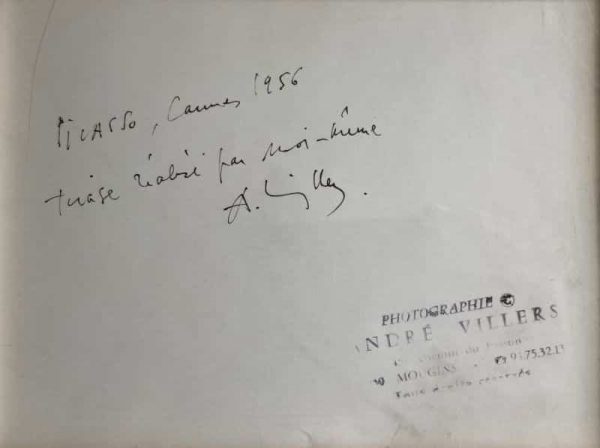 Picasso, Cannes 1956
tirage réalisé par moi-même
A. Villers.
PHOTOGRAPHIE ©
ANDRÉ VILLERS
MOUGINS 93.75.32.1
Tous droits réservés